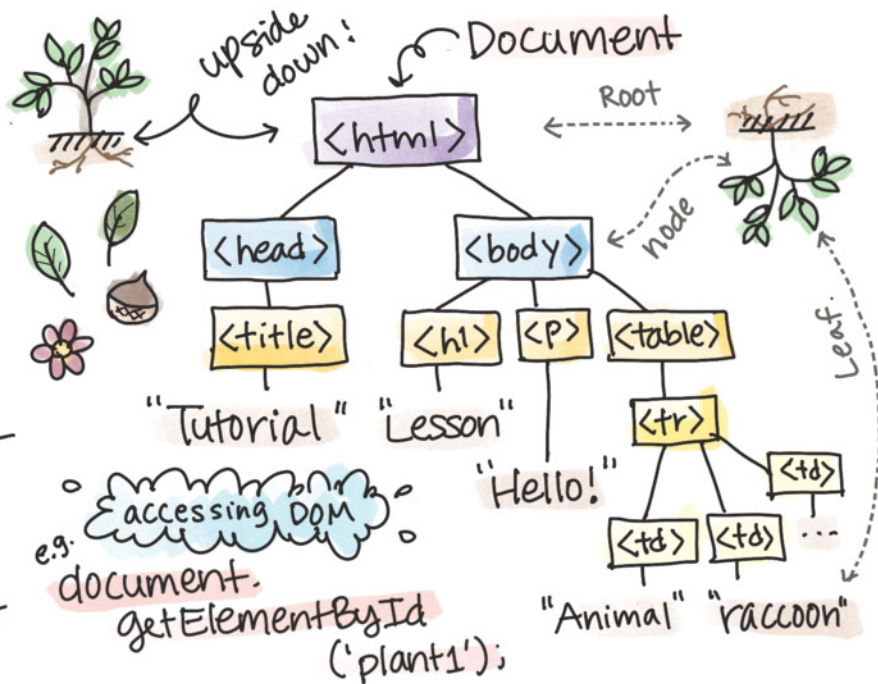 upside
down!
Document
<html>
Root
<head>
<body>
node
<title>
<h1>
<p>
<table>
Leaf.
"Tutorial"
"Lesson"
"Hello!"
<tr>
<td>
<td>
<td>
...
"Animal"
"raccoon"
accessing DOM
e.g.
document.
getElementById
('plant1');